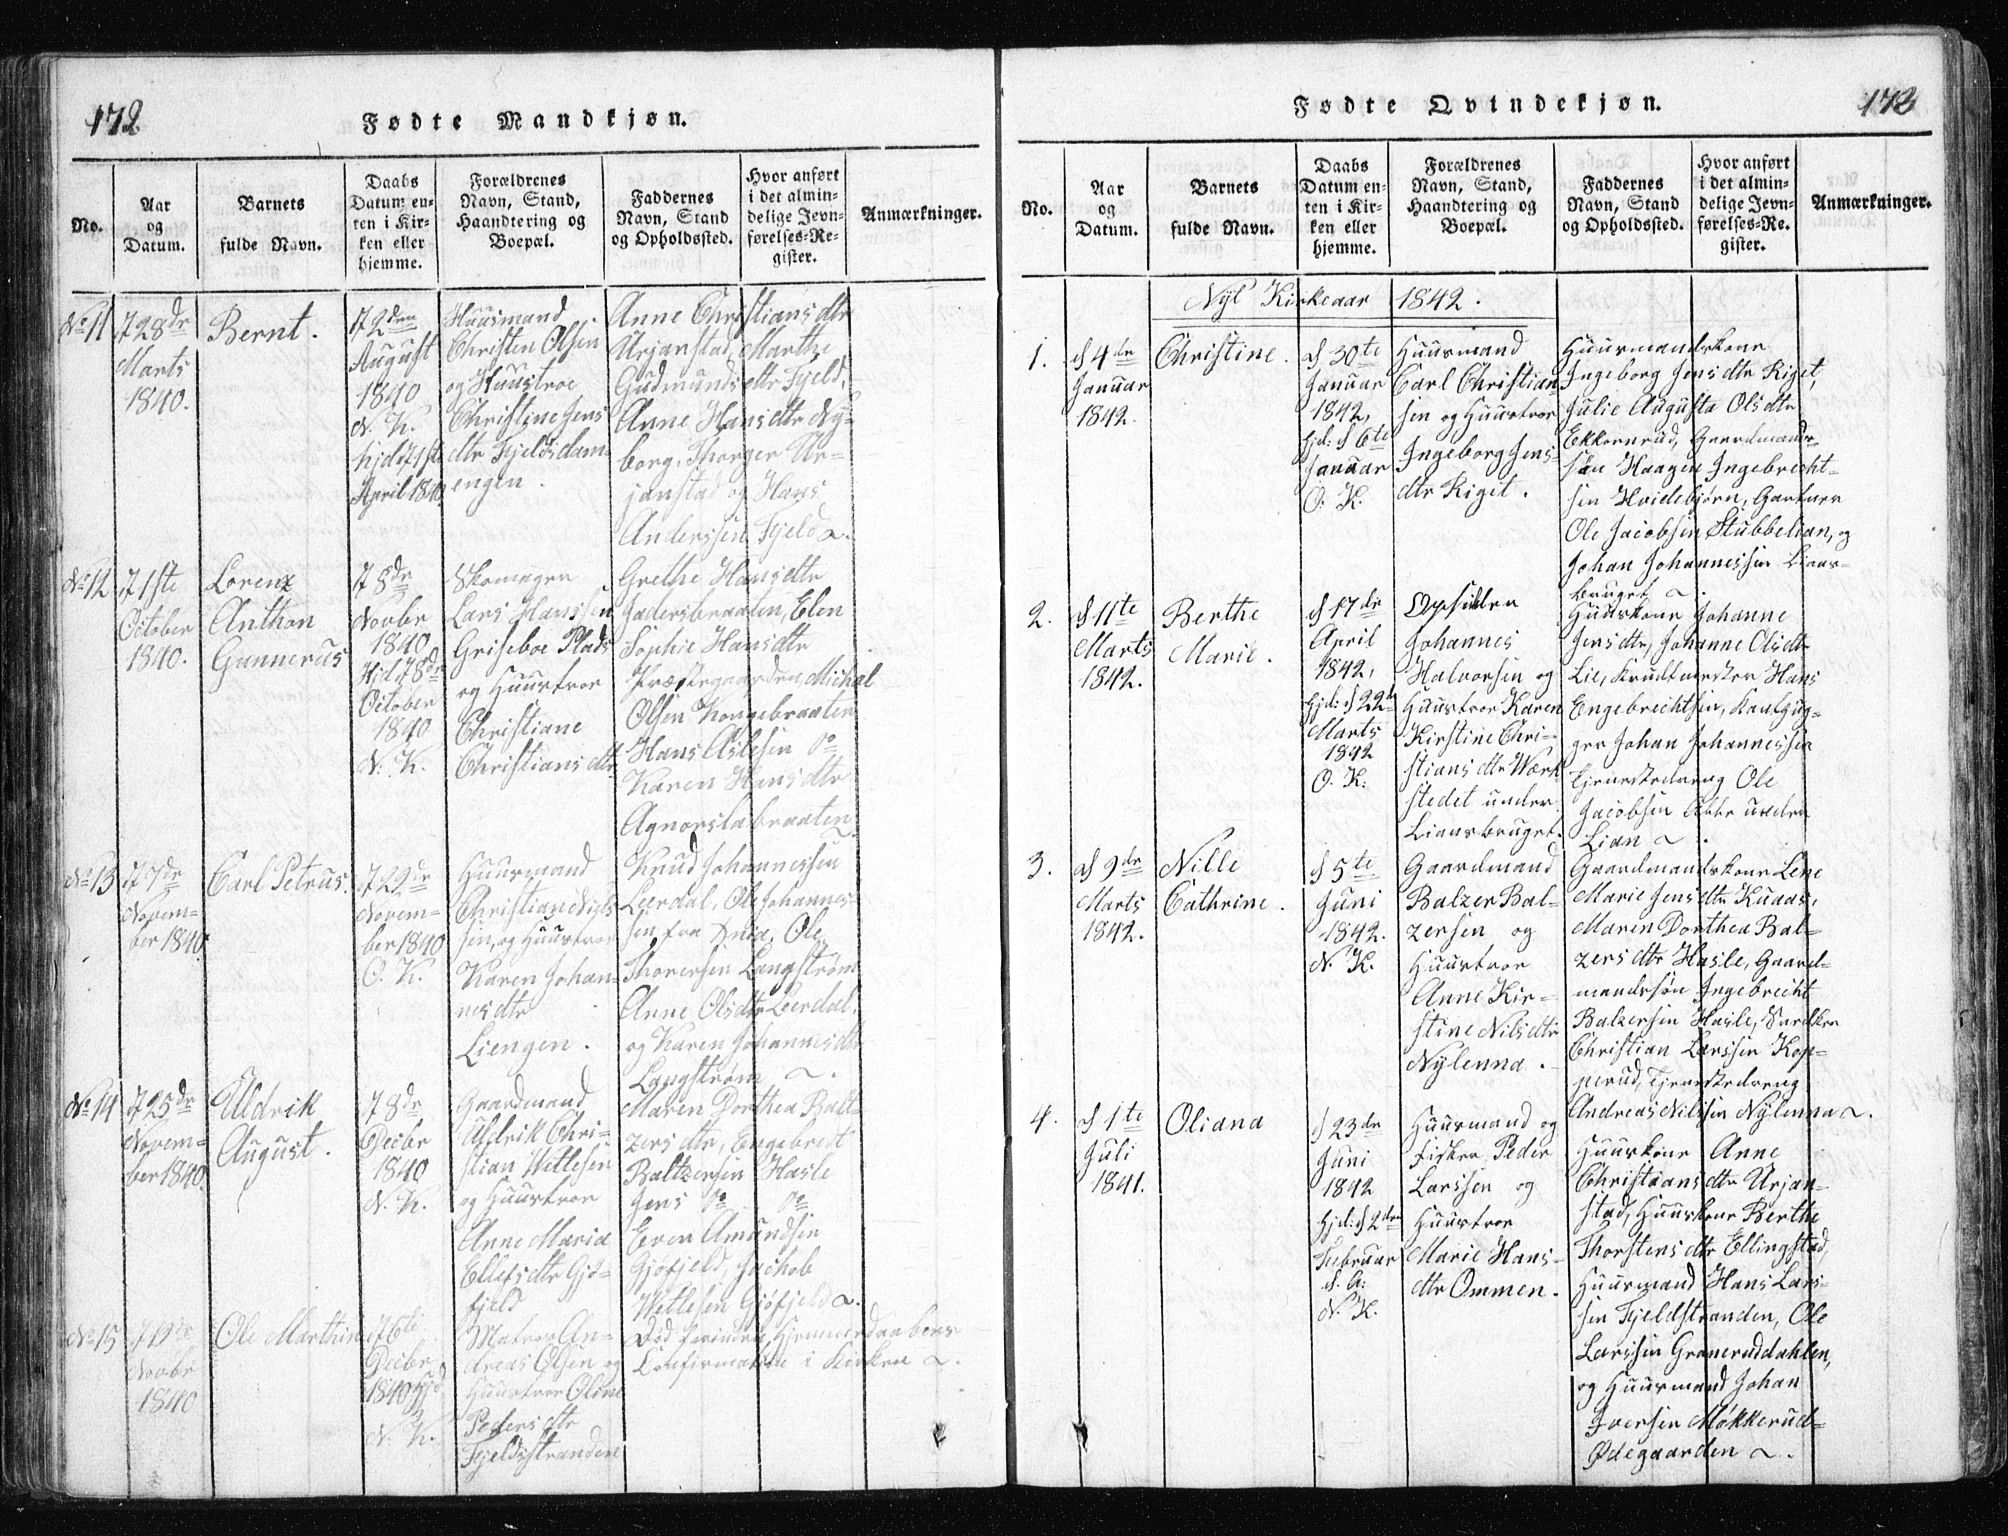 172.
Fødte Mandkjøn.
No.
Aar
og
Datum.
Barnets
fulde Navn.
Daabs
Datum en-
ten i Kir-
ken eller
hjemme.
Forældrenes
Navn, Stand,
Haandtering og
Boepæl.
Faddernes
Navn, Stand
og Opholdssted.
Hvor anført
i det almin-
delige Jevn-
førelses-Re-
gister.
Anmærkninger.
No 11
d 28de
Marts
1840.
Bernt.
d 2den
August
1840
N. K.
hjd: d 1ste
April 1840
Huusmand
Christen Olsen
og Huustroe
Christine Jens
dtr Fjeldsdam-
engen.
Anne Christiansdtr
Urjanstad, Marthe
Gudmundsdtr Fjeld,
Anne Hansdtr Ny-
borg, Thorger Ur-
janstad og Hans
Anderssen Fjeld
No 12
d 1ste
October
1840.
Lorenz
Anthon
Gunnerus
d 8de
Novbr
1840
Hjd: d 8de
October
1840
N. K.
Skomager
Lars Hanssen
Griseboe Plads
og Huustroe
Christiane
Christiansdtr
Grethe Hansdtr
Jadersbraaten, Elen
Sophie Hansdtr
Præstegaarden, Michal
Olsen Kongebraaten
Hans Aslesen do
Karen Hansdtr
Agnorslabraaten
No 13
d 7de
Novem-
ber 1840.
Carl Petrus.
d 22de
Novem-
ber 1840
O. K.
Huusmand
Christian Niels
sen, og Huustroe
Karen Johan-
nesdtr
Liengen.
Knud Johannessen
Leerdal, Ole Johannes-
sen fra do, Ole
Thorersen Langstrøm
Anne Olsdtr Leerdal,
og Karen Johannesdtr
Langstrøm
No 14
d 25de
Novem-
ber 1840.
Uldrik
August.
d 8de
Decbr
1840
N. K.
Gaardmand
Uldrik Chri-
stian Wetlesen
og Huustroe
Anne Maria
Ellefsdtr Gjø-
fjeld
Maren Dorthea Balt-
zersdtr, Engebret
Baltzersen Hasle
Jens do do
Even Amundsen
Gjøfjeld, Jachob
Wetlesen Gjøfjeld
No 15
d 19de
Novbr
1840
Ole Marthin
d 6te
Decbr
1840 Hjd
N. K.
Matros An-
dreas Olsen og
Huustroe Oline
Pedersdtr
Fjeldstranden
Død forinden Hjemmedaabens
Confirmation i Kirken

173
Fødte Qvindekjøn.
No.
Aar
og
Datum.
Barnets
fulde Navn.
Daabs
Datum en-
ten i Kir-
ken eller
hjemme.
Forældrenes
Navn, Stand,
Haandtering og
Boepæl.
Faddernes
Navn, Stand
og Opholdssted.
Hvor anført
i det almin-
delige Jevn-
førelses-Re-
gister.
Anmærkninger.
Nyt Kirkeaar 1842.
1.
d 4de
Januar
1842.
Christine.
d 30te
Januar
1842,
hjd: d 6te
Januar
O. K.
Huusmand
Carl Christian
sen og Huustroe
Ingeborg Jens-
dtr Riget.
Huusmandskone
Ingeborg Jensdtr Riget,
Julie Augusta Olsdtr
Ekkornrud, Gaardmands-
søn Haagen Ingebrecht-
sen Hvidebjørn, Gartner
Ole Jacobsen Stubbelian, og
Johan Johannessen Lians-
bruget
2.
d 11te
Marts
1842.
Berthe
Marie.
d 17de
April
1842,
hjd: d 22de
Marts
1842
O. K.
Opsidder
Johannes
Halvorsen og
Huustroe Karen
Kirstine Chri-
stiansdtr Værk-
stedet under
Liansbruget.
Huuskone Johanne
Jensdtr, Johanne Olsdtr
Lie, Krudtmester Hans
Engebrechtsen, Kulhug-
ger Johan Johannessen
Tjenestedreng Ole
Jacobsen under
Lian
3.
d 9de
Marts
1842.
Nille
Cathrine.
d 5te
Juni
1842.
N. K.
Gaardmand
Balzer Bal-
zersen og
Huustroe
Anne Kir-
stine Nilsdtr
Nylenna.
Gaardmandskone Lene
Marie Jensdtr Knaas,
Maren Dorthea Bal-
zersdtr Hasle, Gaard-
mandssøn Ingebrecht
Balzersen Hasle, Snedker
Christian Larssen Kop-
perud, Tjenestedreng
Andreas Nilssen Nylenna
4.
d 1te
Juli
1841.
Oliana
d 23de
Juni
1842
hjd: d 2den
Februar
d. A.
N. K.
Huusmand og
Fisker Peder
Larssen og
Huustroe
Marie Hans-
dtr Ommen.
Huuskone Anne
Christiansdtr Urjan-
stad, Huuskone Berthe
Thorstensdtr Ellingstad,
Huusmand Hans Lars-
sen Fjeldstranden, Ole
Larssen Graneruddahlen,
og Huusmand Johan
Iversen Møkkerud-
Ødegaarden